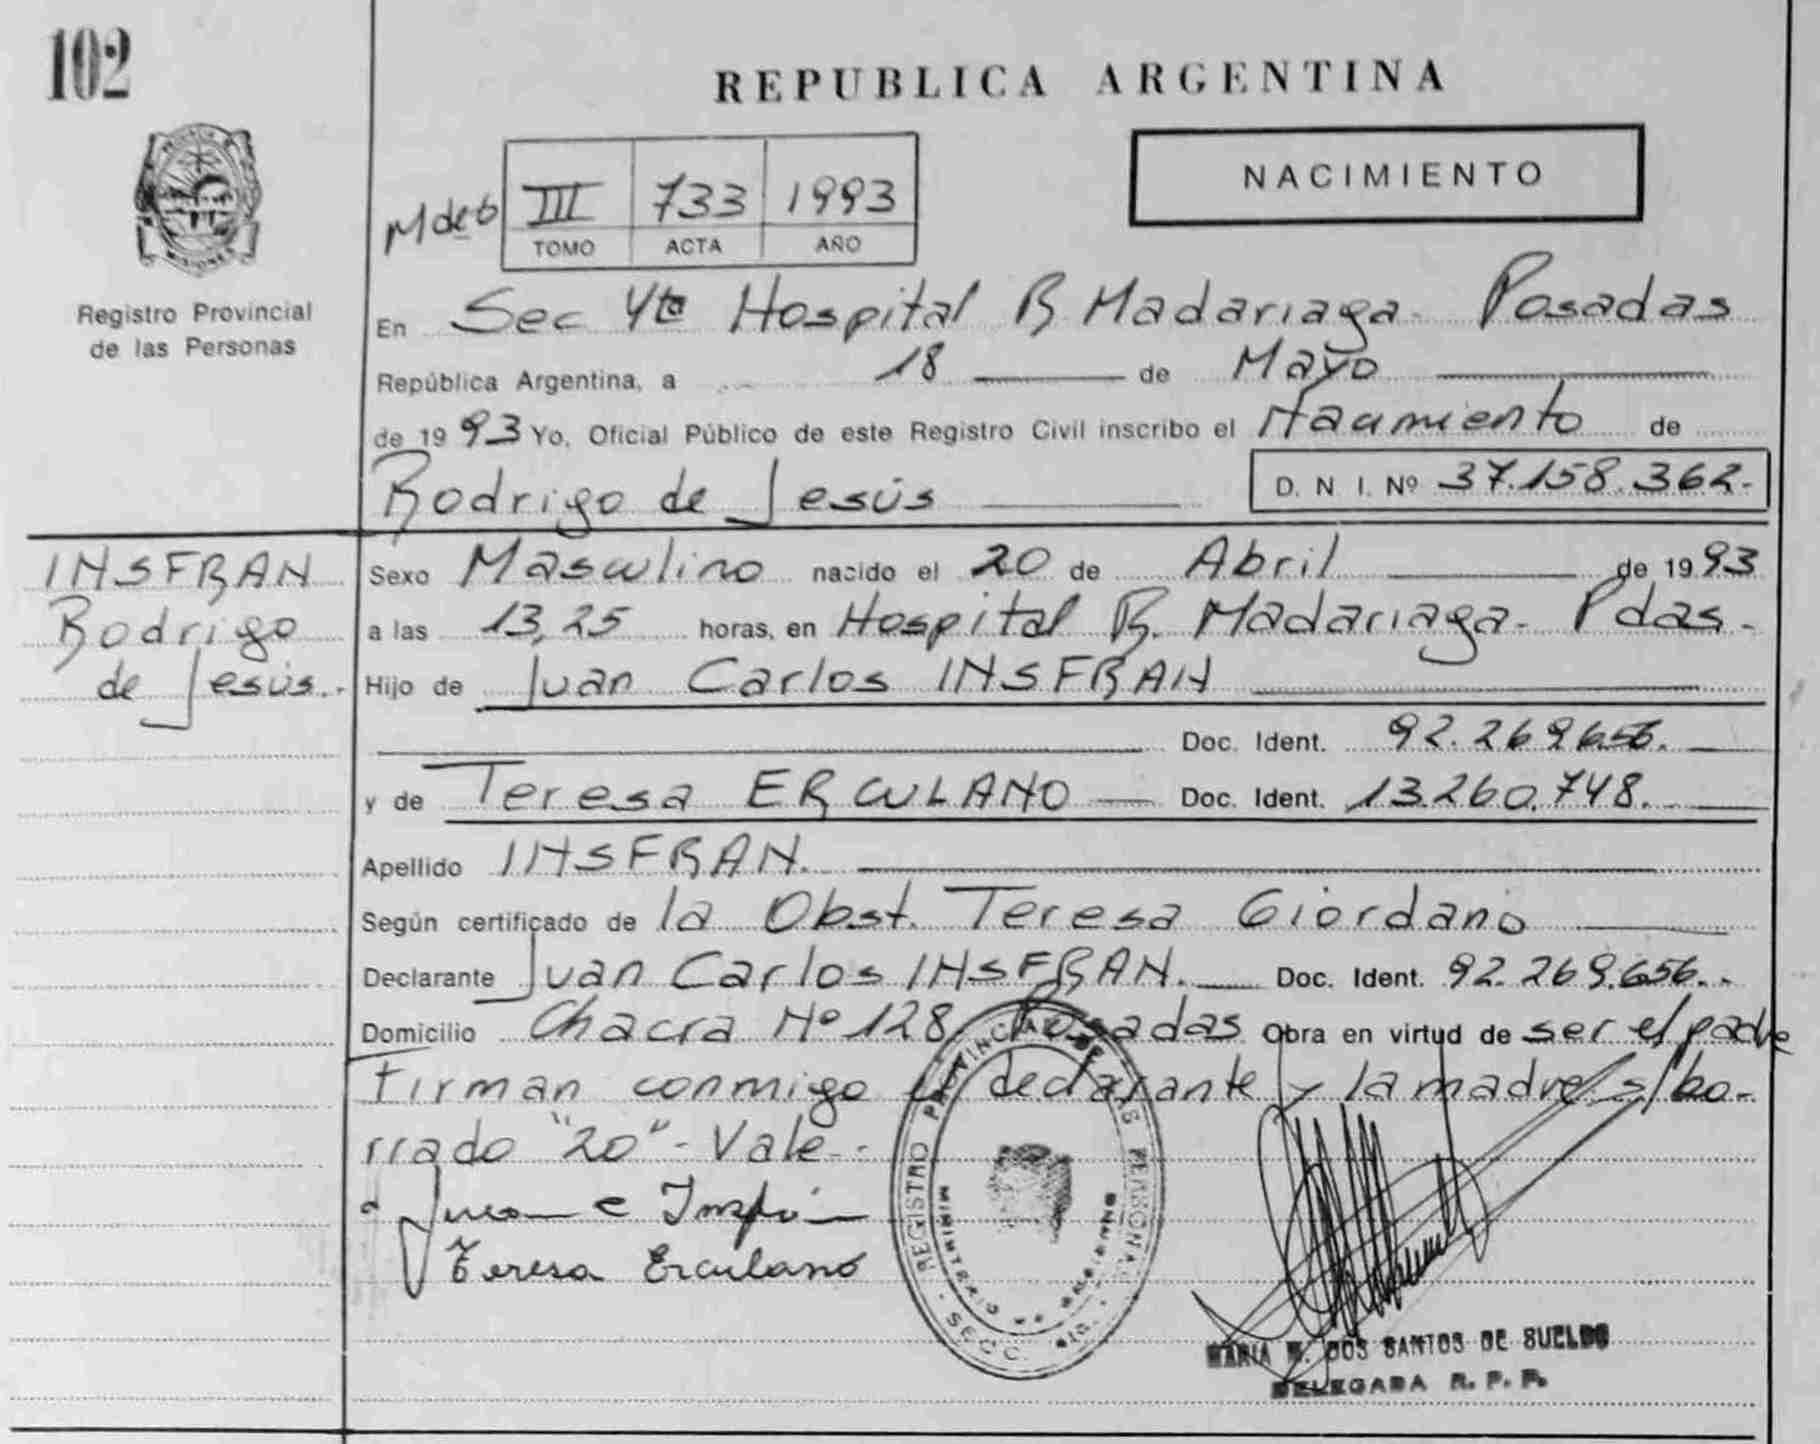 102
REPUBLICA ARGENTINA
NACIMIENTO
III 733 1993
TOMO ACTA AÑO
Registro Provincial
de las Personas
En Sec 4ta Hospital R Madariaga - Posadas
República Argentina, a 18 de Mayo
de 1993 Yo, Oficial Público de este Registro Civil inscribo el Nacimiento de
Rodrigo de Jesús D. N. I. Nº 37.158.362.-
INSFRAN
Rodrigo
de Jesús.-
Sexo Masculino nacido el 20 de Abril de 1993
a las 13,25 horas, en Hospital R. Madariaga - Pdas -
Hijo de Juan Carlos INSFRAN
Doc. Ident. 92.269.656.
y de Teresa ERCULANO Doc. Ident. 13.260.748.
Apellido INSFRAN.
Según certificado de la Obst. Teresa Giordano
Declarante Juan Carlos INSFRAN. Doc. Ident. 92.269.656.-
Domicilio Chacra Nº 128, Posadas Obra en virtud de ser el padre
Firman conmigo el declarante y la madre s/bo-
rrado "20" - Vale -
Juan C Insfrán
Teresa Erculano
REGISTRO PROVINCIAL DE LAS PERSONAS
MARIA DOS SANTOS DE SUELDO
DELEGADA R. P. P.